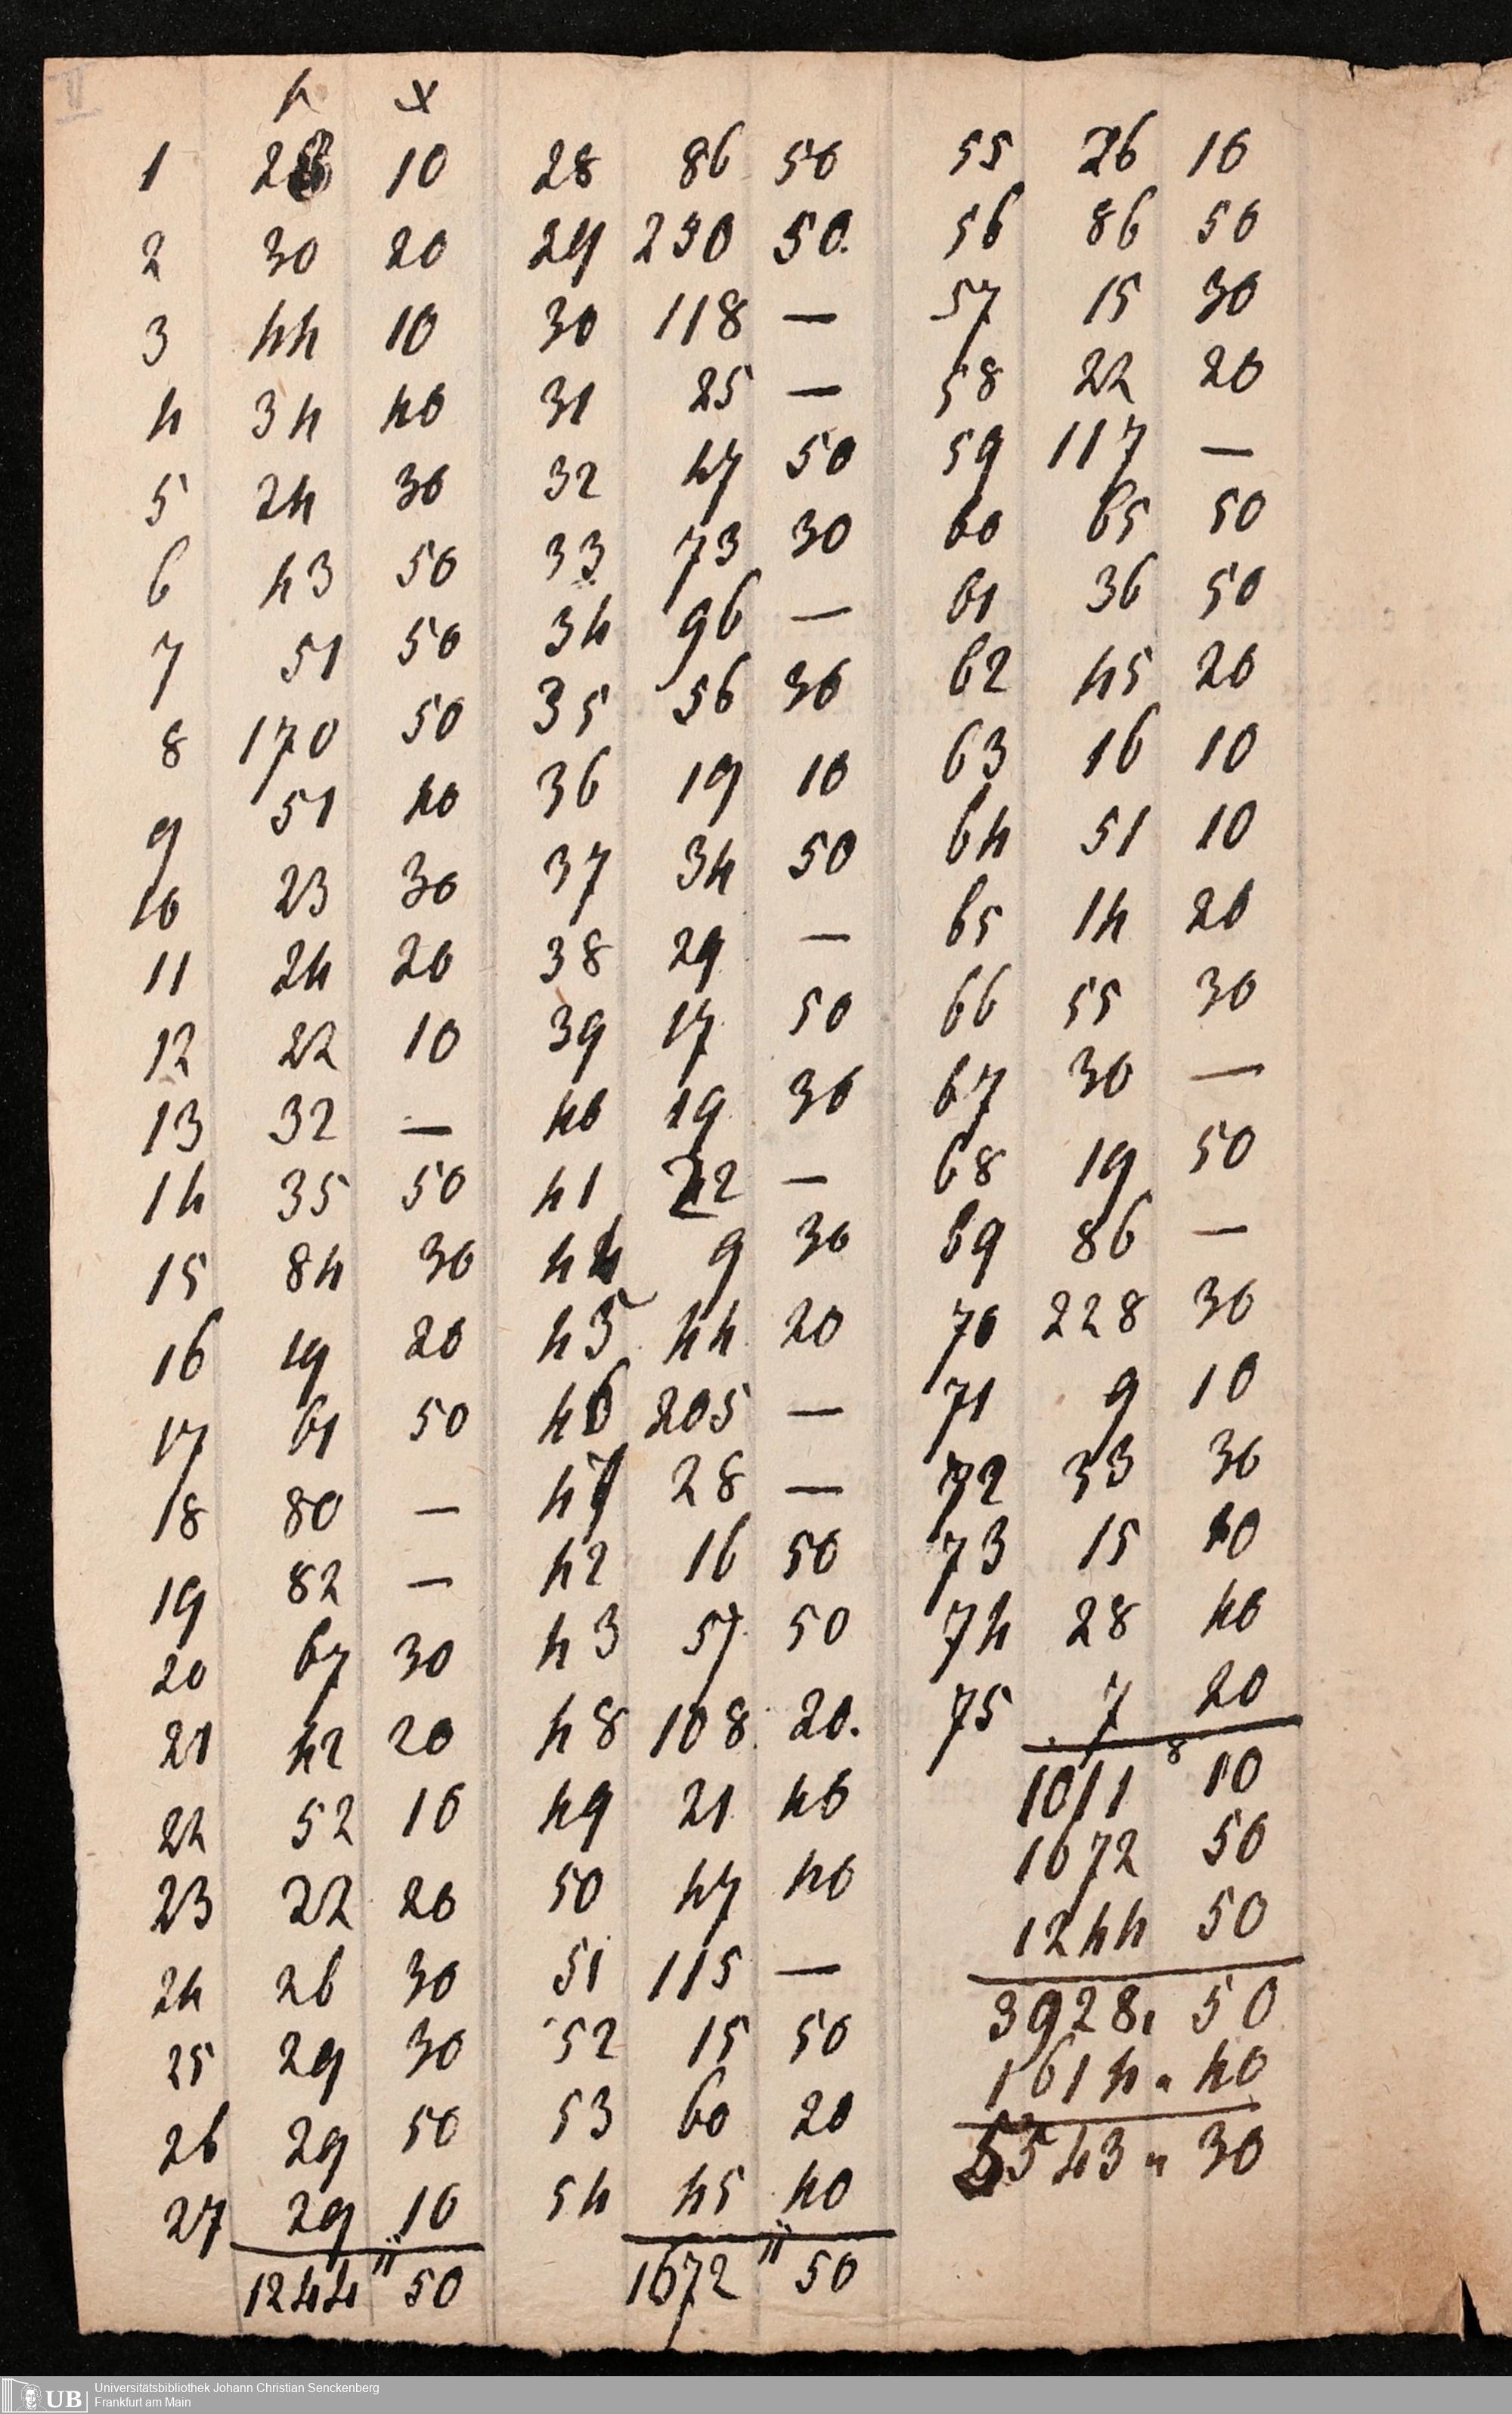 f x
1 28 10
2 30 20
3 44 10
4 34 40
5 24 30
6 43 50
7 51 50
8 170 50
9 51 40
10 23 30
11 24 20
12 22 10
13 32 —
14 35 50
15 84 30
16 19 20
17 61 50
18 80 —
19 82 —
20 67 30
21 42 20
22 52 10
23 22 20
24 26 30
25 29 30
26 29 50
27 29 10
11
1244 50
28 86 50
29 230 50.
30 118 —
31 25 —
32 47 50
33 73 30
34 96 —
35 56 30
36 19 10
37 34 50
38 29 —
39 17 50
40 19 30
41 42 —
44 9 30
45 44 20
46 205 —
47 28 —
42 16 50
43 57 50
48 108 20.
49 21 40
50 47 40
51 115 —
52 15 50
53 60 20
54 45 40
11
1672 50
55 26 10
56 86 50
57 15 30
58 22 20
59 117 —
60 65 50
61 36 50
62 45 20
63 16 10
64 51 10
65 14 20
66 55 30
67 30 —
68 19 50
69 86 —
70 228 30
71 9 10
72 33 30
73 15 10
74 28 40
75 7 20
8
1011 10
1672 50
1244 50
3928. 50
1614 " 40
5543 " 30
UB Universitätsbibliothek Johann Christian Senckenberg
Frankfurt am Main